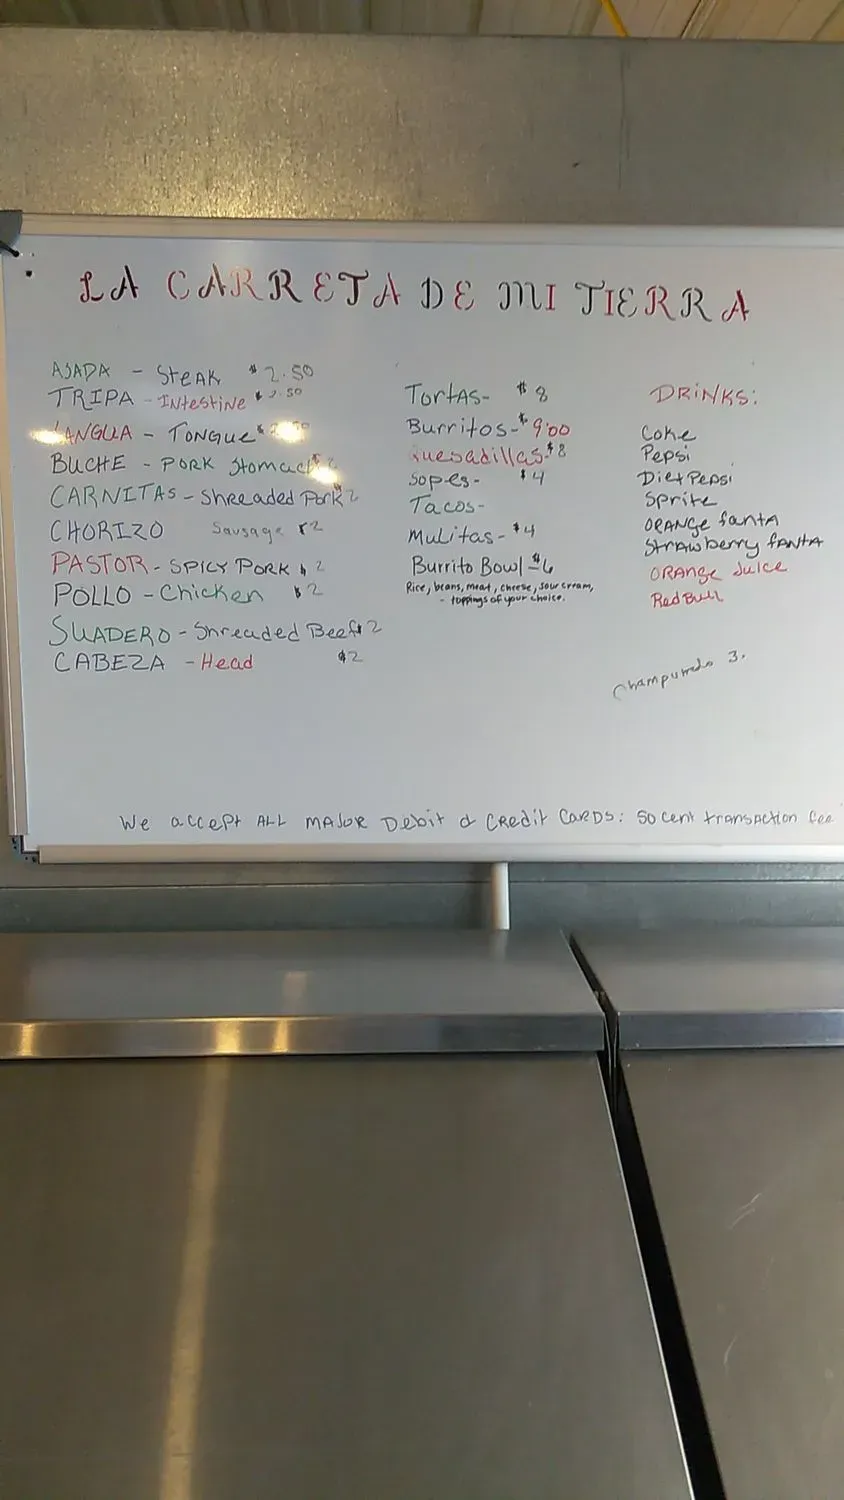 LA CARRETA DE MI TIERRA
ASADA - Steak $2.50
TRIPA - Intestine $2.50
LANGUA - TONGUE $
BUCHE - PORK Stomach $2
CARNITAS - Shreaded Pork 2
CHORIZO Sausage $2
PASTOR - SPICY PORK $2
POLLO - Chicken $2
SUADERO - Shreaded Beef $2
CABEZA - Head $2
TortAs- $8
Burritos- $9.00
Quesadillas- $8
Sopes- $4
Tacos-
Mulitas- $4
Burrito Bowl - $6
Rice, beans, meat, cheese, sour cream,
- toppings of your choice.
DRINKS:
Coke
Pepsi
Diet Pepsi
Sprite
ORANGE fanta
Strawberry fANTA
ORANGE Juice
Red Bull
Champurrado 3.
We accept ALL MAJOR Debit & Credit CARDS: 50 cent transaction fee